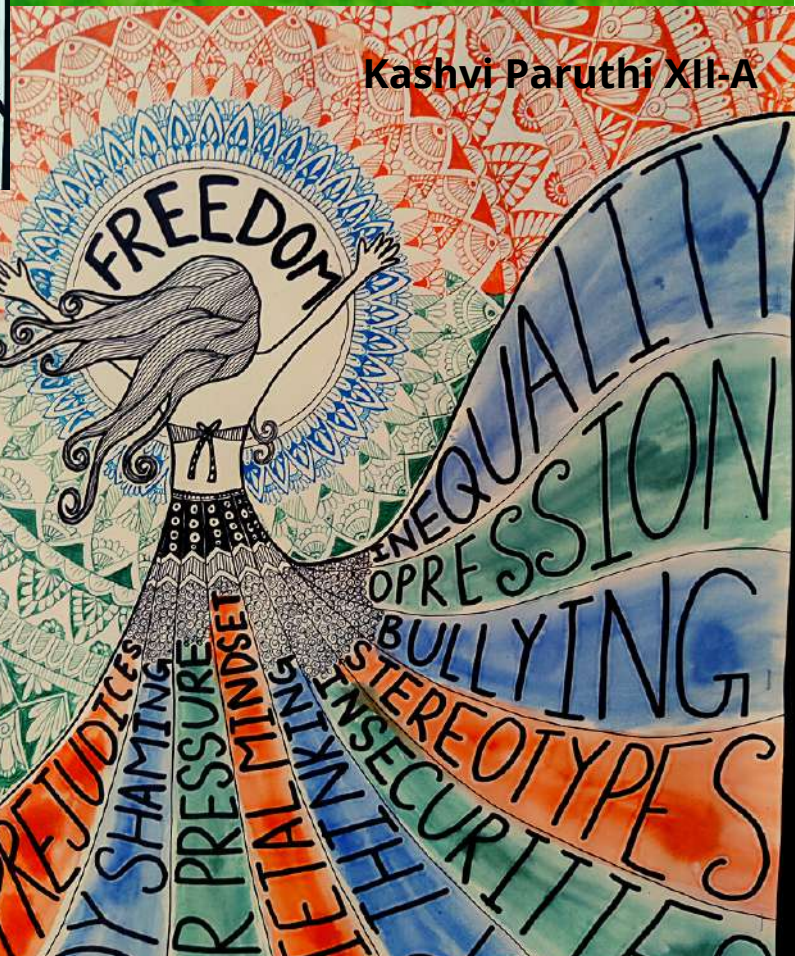 Kashvi Paruthi XII-A
FREEDOM
INEQUALITY
OPRESSION
BULLYING
STEREOTYPES
INSECURITIES
THINKING
IETAL MINDSET
R PRESSURE
DY SHAMING
PREJUDICES